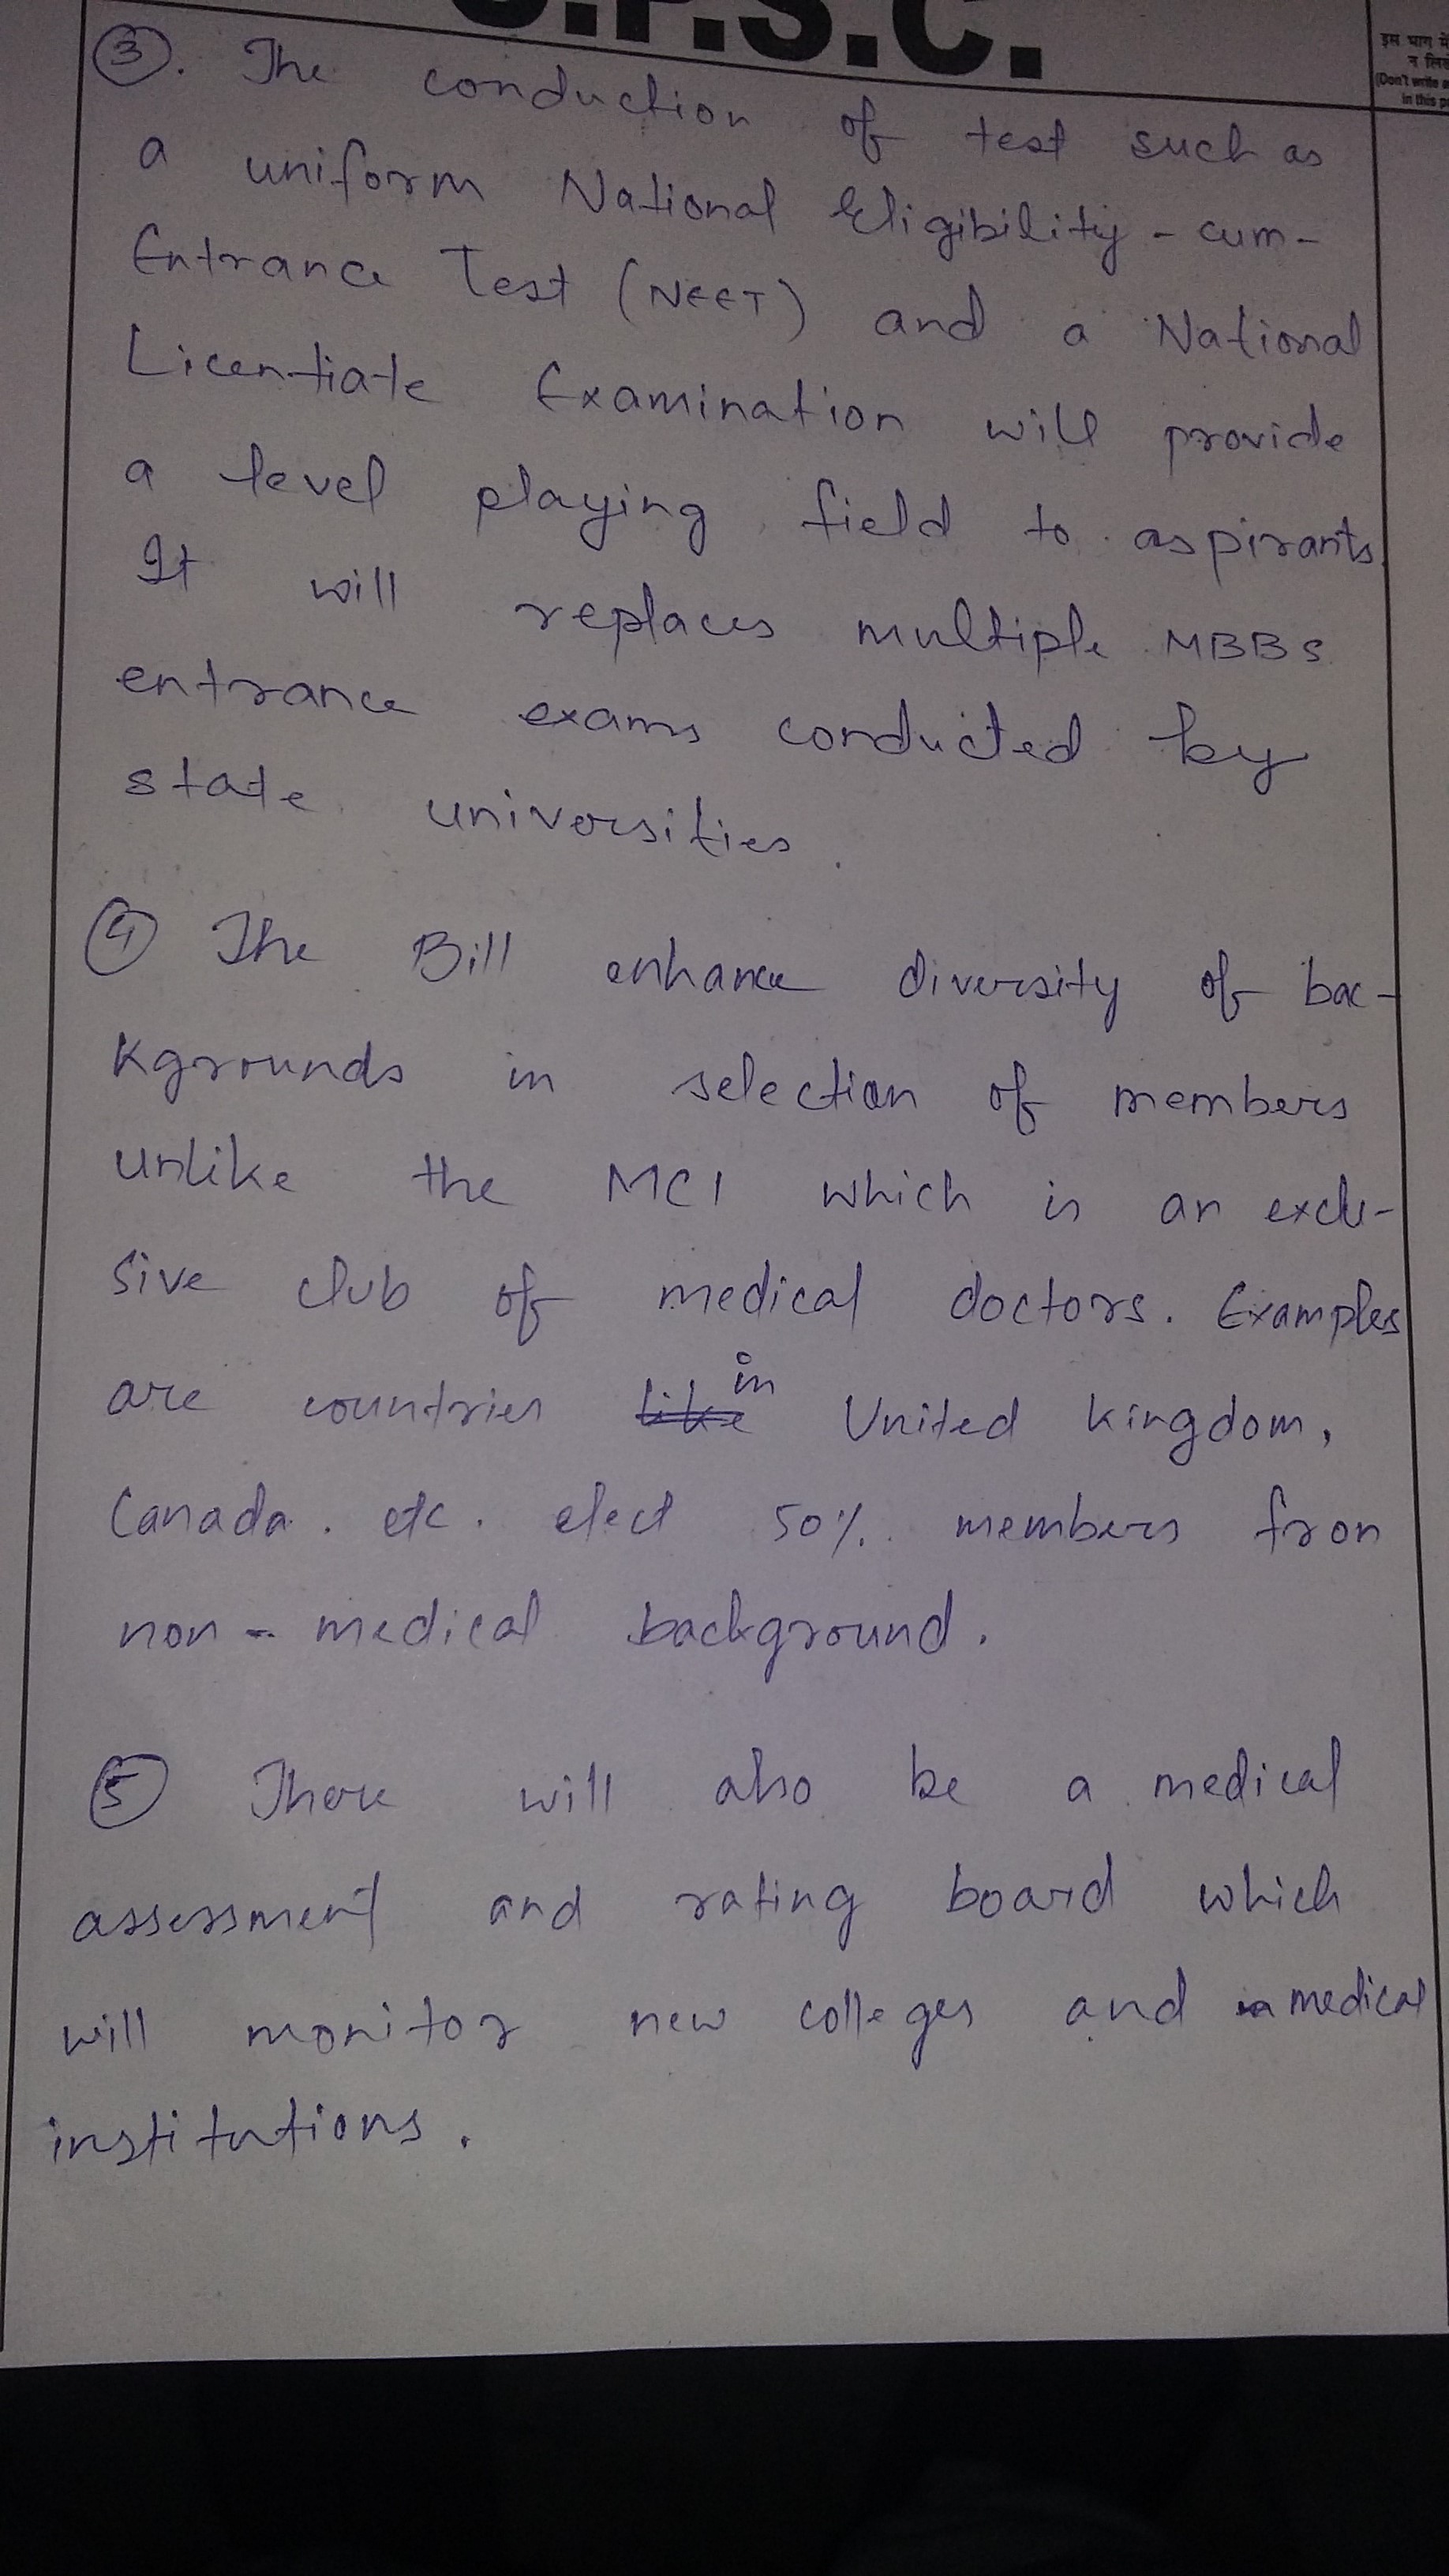 U.P.S.C.
इस भाग में
(Don't write
in this
③. The conduction of test such as
a uniform National Eligibility-cum-
Entrance Test (NEET) and a National
Licentiate Examination will provide
a level playing field to aspirants.
It will replaces multiple MBBS
entrance exams conducted by
state universities.
④ The Bill enhance diversity of bac-
kgrounds in selection of members
unlike the MCI which is an exclu-
sive club of medical doctors. Examples
are countries like in United kingdom,
Canada. etc. elect 50%. members from
non-medical background.
⑤ There will also be a medical
assessment and rating board which
will monitor new colleges and medical
institutions.